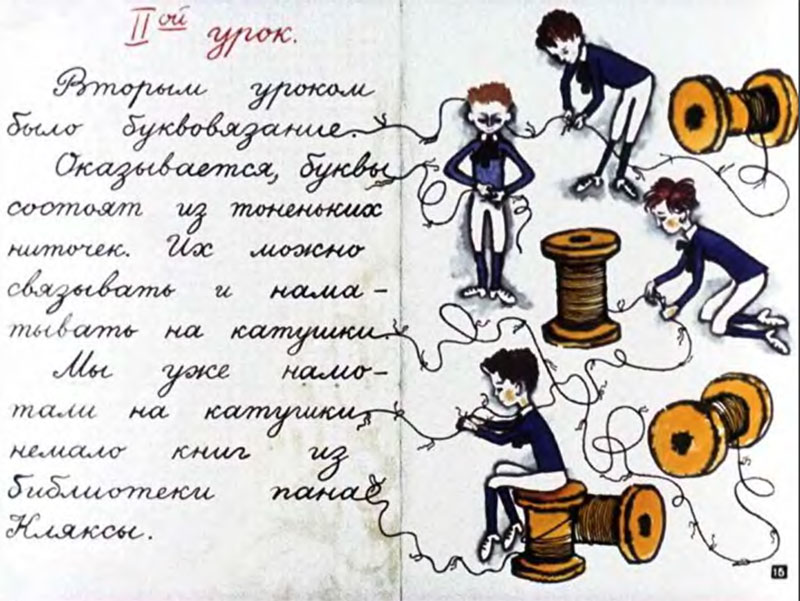 IIой урок.
Вторым уроком
было буквовязание.
Оказывается, буквы
состоят из тоненьких
ниточек. Их можно
связывать и нама-
тывать на катушки.
Мы уже намо-
тали на катушки
немало книг из
библиотеки пана
Кляксы.
15